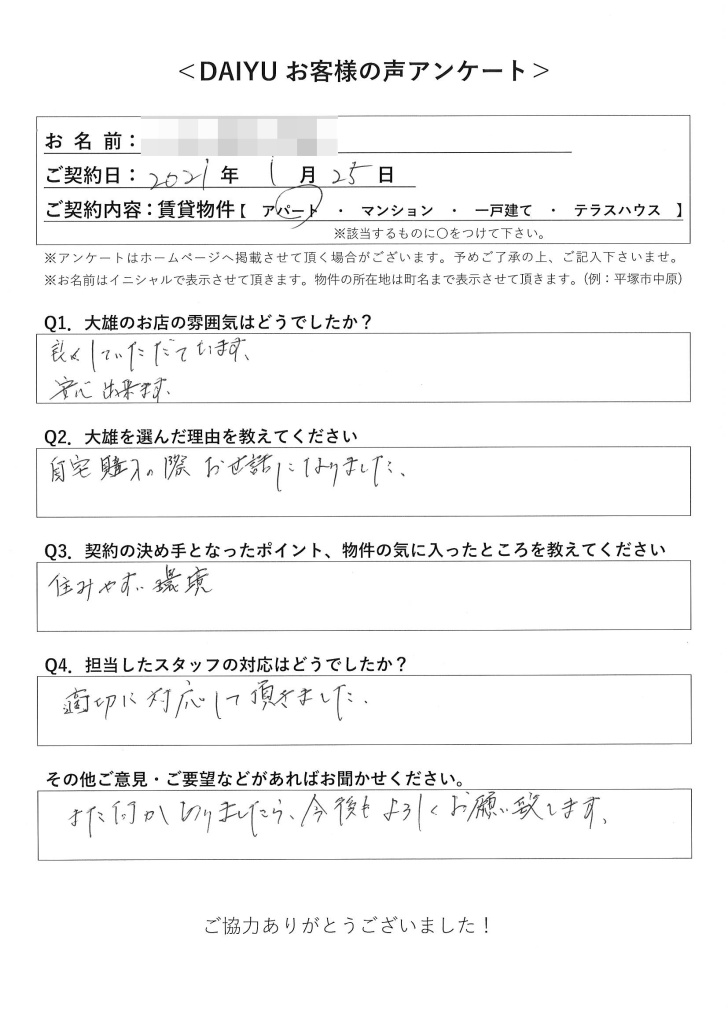 ＜DAIYU お客様の声アンケート＞
お 名 前：
ご契約日： 2021 年 1 月 25 日
ご契約内容：賃貸物件【 アパート ・ マンション ・ 一戸建て ・ テラスハウス 】
※該当するものに〇をつけて下さい。
※アンケートはホームページへ掲載させて頂く場合がございます。予めご了承の上、ご記入下さいませ。
※お名前はイニシャルで表示させて頂きます。物件の所在地は町名まで表示させて頂きます。（例：平塚市中原）
Q1．大雄のお店の雰囲気はどうでしたか？
良くしていただいています、
安心出来ます。
Q2．大雄を選んだ理由を教えてください
自宅購入の際お世話になりました、
Q3．契約の決め手となったポイント、物件の気に入ったところを教えてください
住みやすい環境
Q4．担当したスタッフの対応はどうでしたか？
適切に対応して頂きました、
その他ご意見・ご要望などがあればお聞かせください。
また何かありましたら、今後もよろしくお願い致します。
ご協力ありがとうございました！